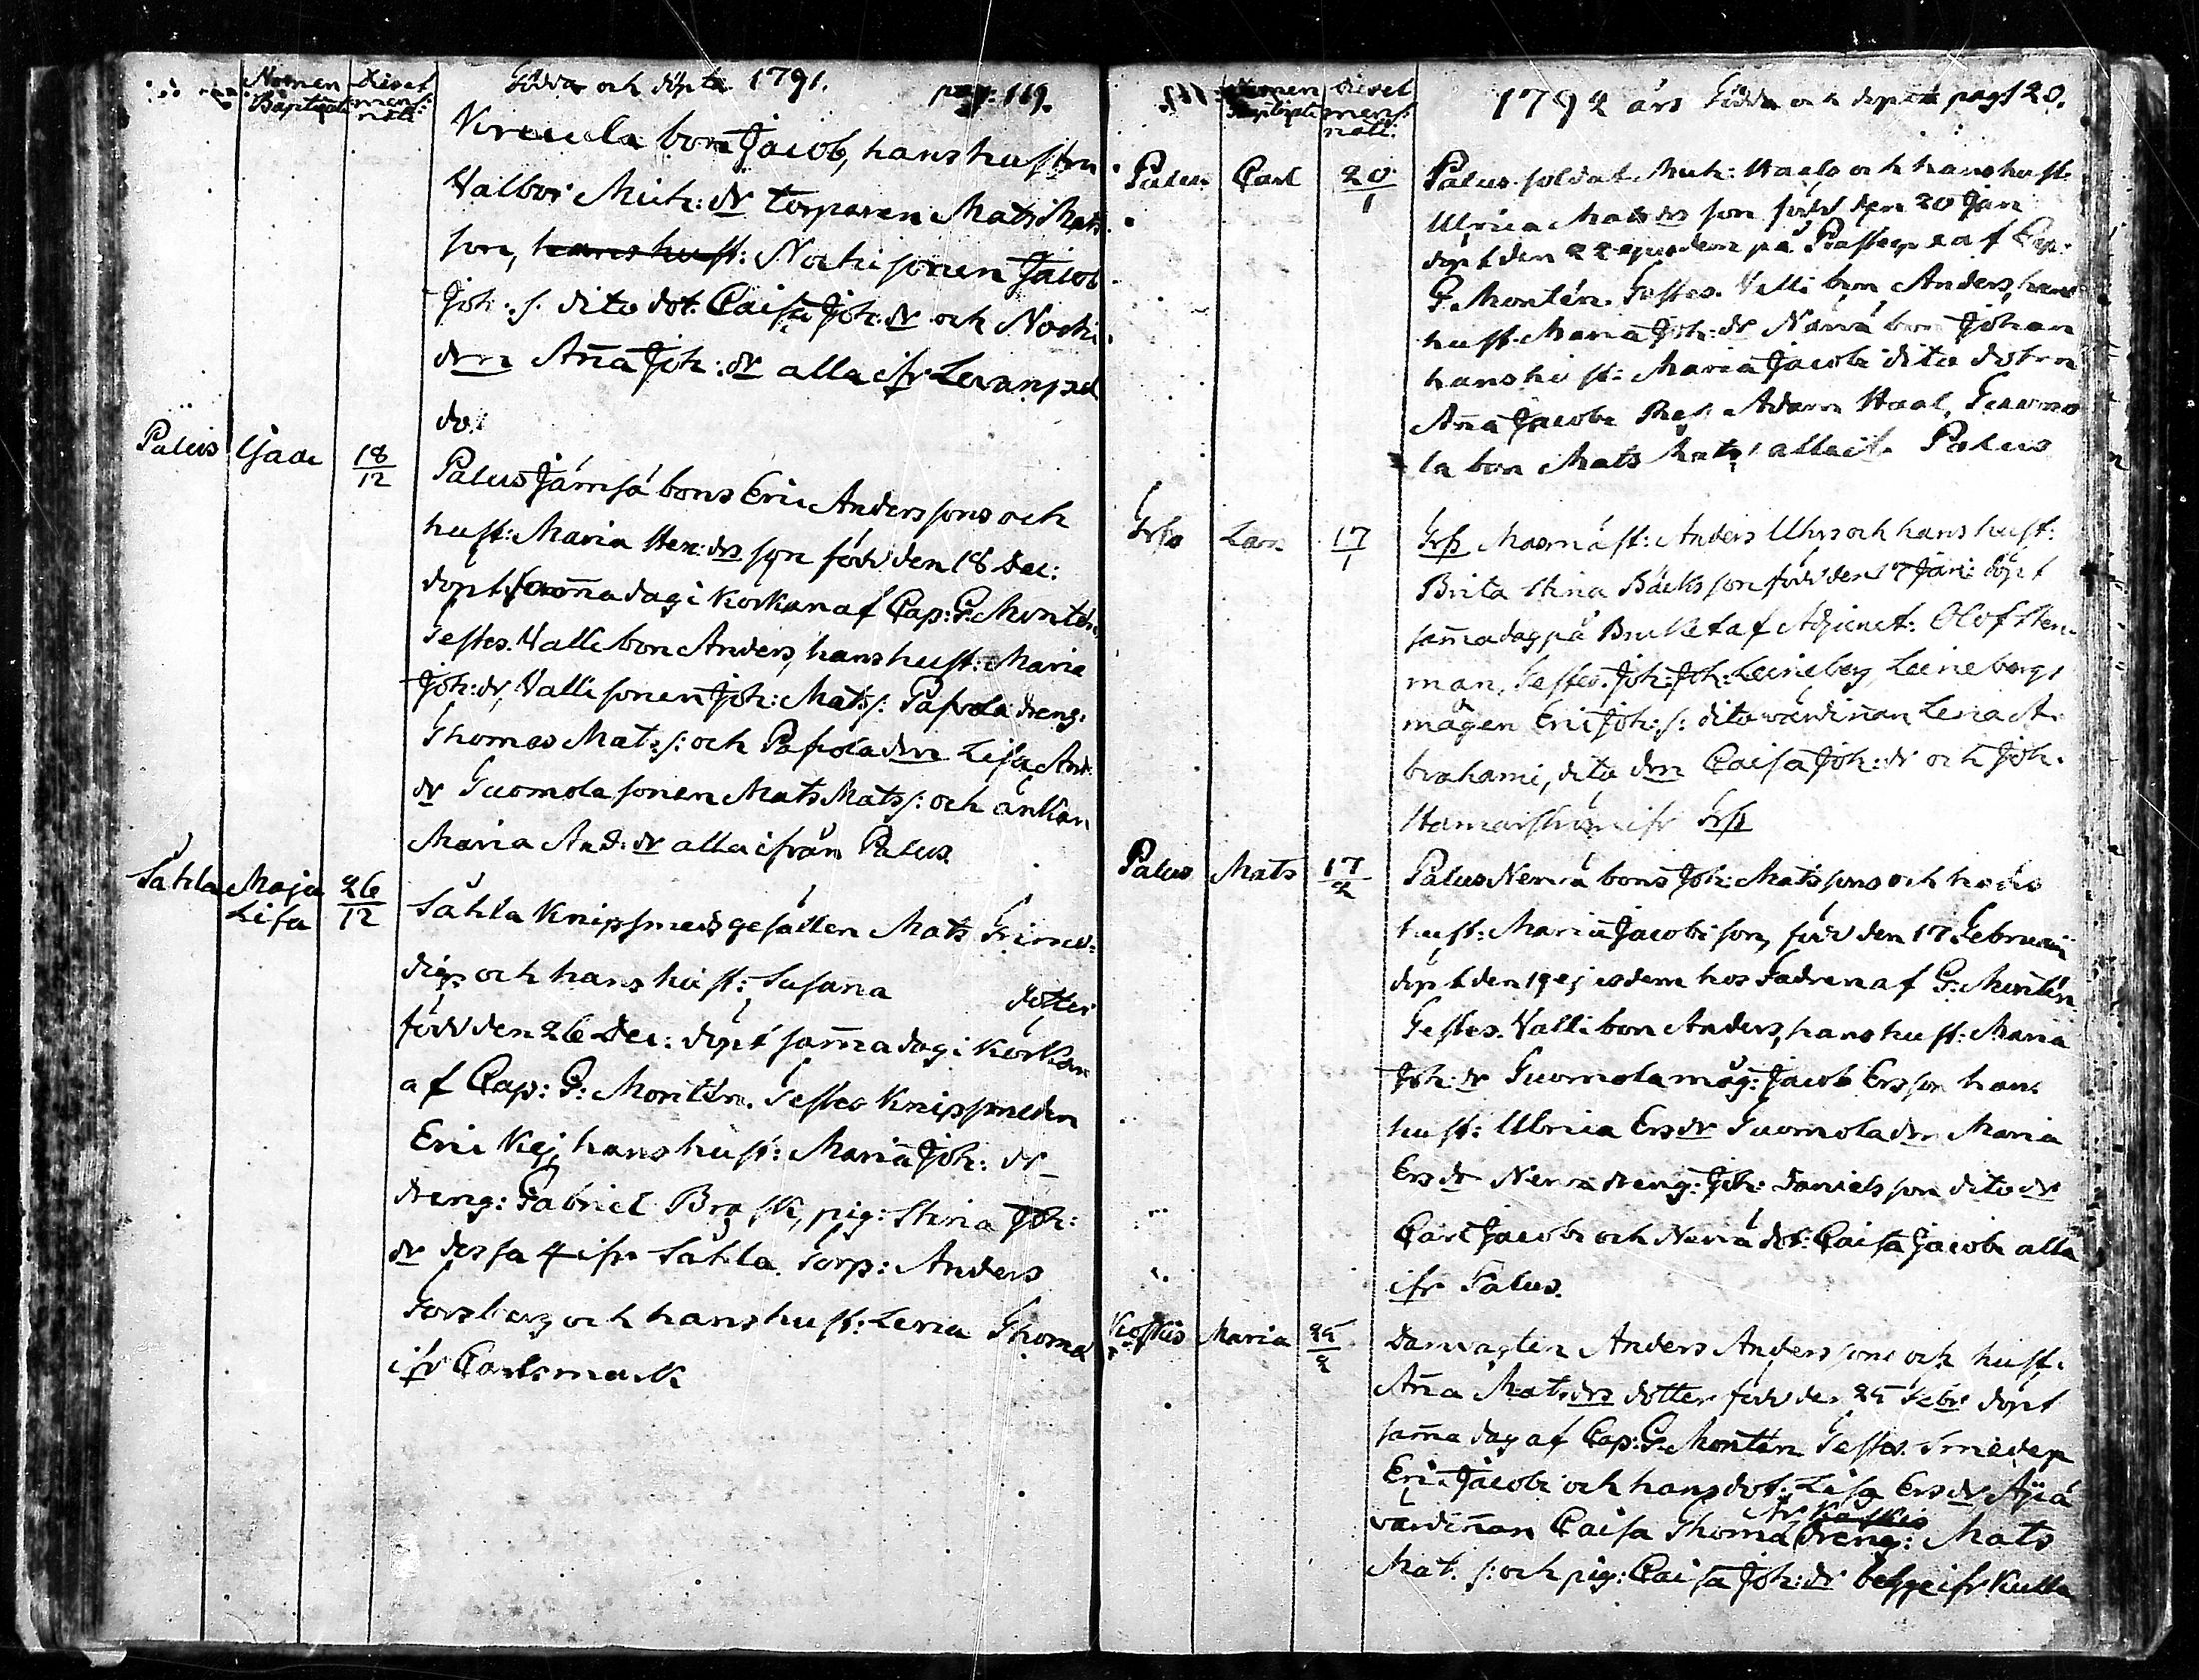 Nomen Baptizati
Diest mens: nati
Födda och döpta 1791. pag. 119.
bon Jacob, hans hustru
Valbor Mich: dr torparen Mats Mats
son, hans hust: Nocki sonen Jacob
Joh: s. dito dot. Caisa Joh: dr och Nocki
drn Aña Joh: dr alla ifr Levanpel
do.
Palus
18/12
Palus Jämsä bons Eric Anderssons och
hust: Maria Hen: drs son född den 18 Dec:
döpt samma dag i Kyrkan af Cap: G: Montén,
Testes. Valli bon Anders, hans hust: Maria
Joh: dr, Valli sonen Joh: Mats s: Pafvola dreng.
Thomas Mats s: och Pafvola drn Lisa And:
dr Tuomola sonen Mats Mats s: och änkan
Maria And: dr alla ifrån Palus.
Sahla Maja Lisa 26/12
Sahla Knipsmeds gesällen Mats
och hans hust: Susana dotter
född den 26 Dec: döpt samma dag i Kyrkan
af Cap: G: Montén. Testes Knipsmeden
Eric Kej, hans hust: Maria Joh: dr
dreng: Gabriel Brask, pig: Stina Joh:
dr dessa 4 ifr Sahla. Torp: Anders
Forsberg och hans hust: Lena Thomæ
ifr Carlsmark
Nomen Baptizati
Diest mens: nati
1792 års Födda och döpta pag 120.
Palus Carl 20/1
Palus soldat Mich: och hans hust.
Ulrica Mats drs son född den 20 Jan
döpt den 22 ejusdem på af Cap:
G. Montén. Testes. Valli bon Anders, hans
hust. Maria Joh: dr bon Johan
hans hust: Maria Jacobi dito dotren
Aña Jacobi Adam Haal, Tuomo
la bon Mats Mats s: alla if. Palus
Lars 17/1
Masmäst: Anders Uhrs och hans hust:
Brita Stina Bäcks son född den 17 Jan: döpt
samma dag på Bruket af Adjunct: Olof Sten-
man, Testes. Joh: Joh: Leineberg, Leinebergs
mågen Eric Joh: s: dito värdinnan Lena A-
brahami, dito drn Caisa Joh: dr och Joh.
ifr
Palus Mats 17/2
Palus bons Joh: Matssons och hans
hust: Maria Jacobi son, född den 17 Februarii
döpt den 19 ejusdem hos Fadren af G: Montén
Testes. Valli bon Anders, hans hust: Maria
Joh: dr Tuomola måg: Jacob Ersson hans
hust: Ulrica Ers dr Tuomola drn Maria
Ers dr dreng: Joh: Danielsson dito dr
Jacobi och dot: Caisa Jacobi alla
ifr Palus.
Koskis Maria 25/2
Damvagten Anders Anderssons och hust:
Aña Mats drs dotter född den 25 Febr döpt
samma dag af Cap: G: Montén Testes. Smeden
Eric Jacobi och hans dot: Lisa Ers dr
värdinnan Caisa Thomæ dreng: Mats
Mat. s: och pig: Caisa Joh: dr begge ifr Kulla